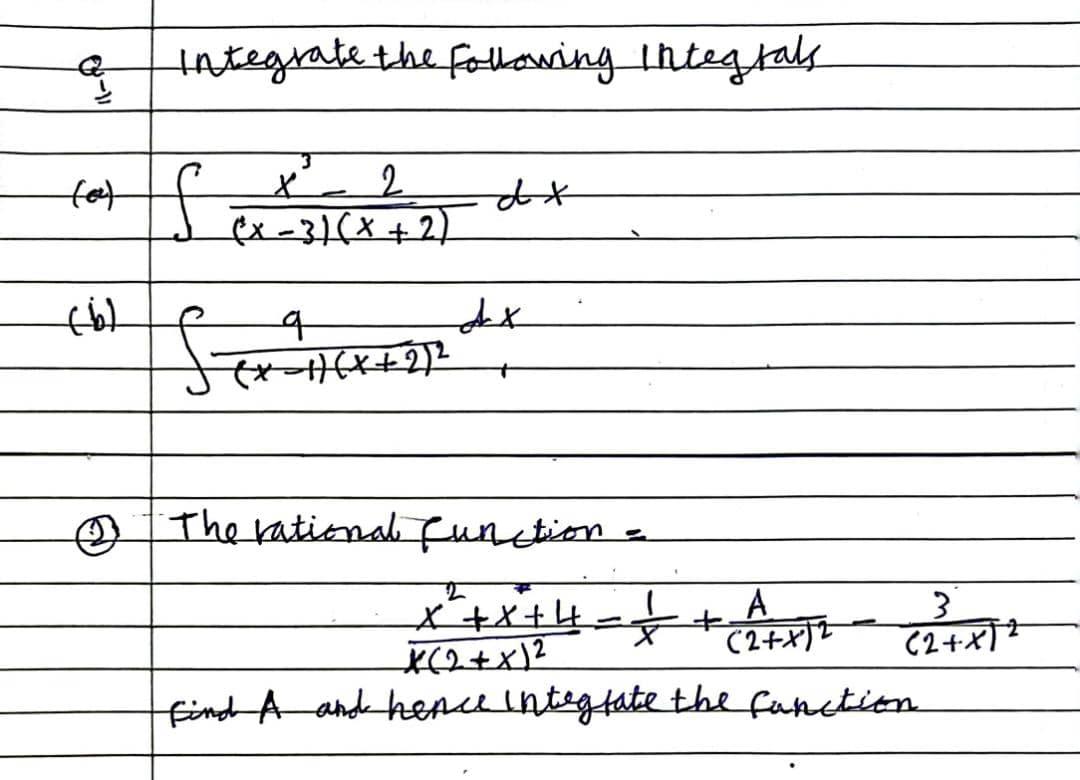 Q1 Integrate the following Integrals
(a) ∫ x³ - 2 / (x-3)(x+2) dx
(b) ∫ 9 / (x-1)(x+2)² dx
② The rational function =
x²+x+4 / x(2+x)² = 1/x + A/(2+x)² - 3/(2+x)²
find A and hence integrate the function